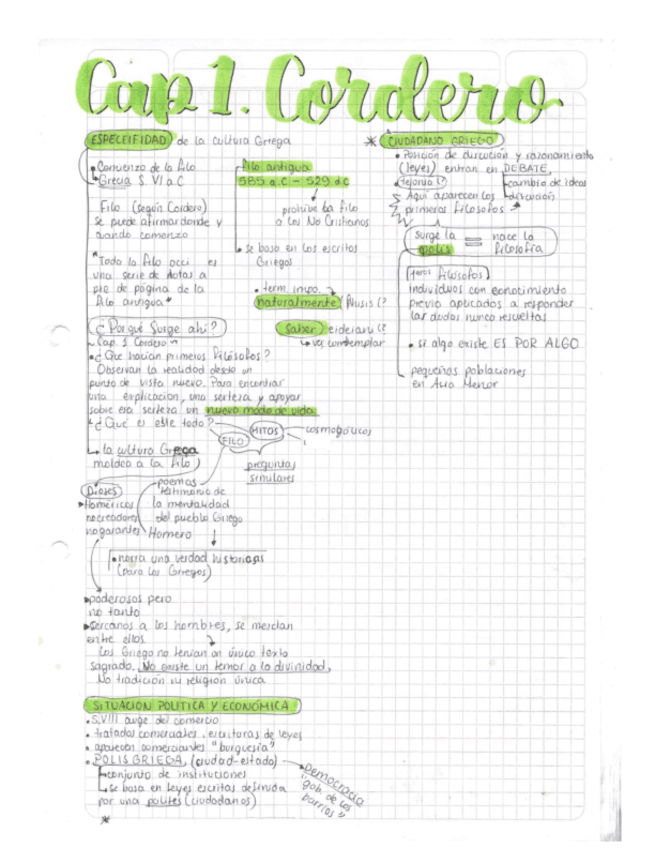 Cap 1. Cordero
ESPECIFIDAD de la cultura Griega
• Comienzo de la filo
• Grecia S. VI a.C
Filo (según Cordero)
se puede afirmar donde y
cuando comenzo
"Toda la filo occi es
una serie de notas a
pie de página de la
filo antigua"
filo antigua
585 a.C - 529 d.C
prohibe la filo
a los No Cristianos
• se basa en los escritos
Griegos
• term. impo.
naturalmente Phusis (?
Saber eideianu (?
ver, contemplar
¿Porqué Surge ahí?
~ Cap. 1 Cordero ~
• ¿Que hacían primeros filósofos?
Observan la realidad desde un
punto de vista nuevo. Para encontrar
una explicación, una serteza y apoyar
sobre esa serteza un nuevo modo de vida
¿Qué es este todo?
MITOS
cosmogónicos
FILO
preguntas
similares
la cultura Griega
moldeó a la filo)
Dioses
Homéricos
no creadores
no garantes
poemas
testimonio de
la mentalidad
del pueblo Griego
Homero
• narra una verdad historias
(para los Griegos)
poderosos pero
no tanto
Sercanos a los hombres, se mezclan
entre ellos.
Los Griego no tenían un único texto
sagrado. No existe un temor a la divinidad.
No tradición ni religión única
SITUACIÓN POLITICA Y ECONÓMICA
• S.VIII auge del comercio
• tratados comerciales, escrituras de leyes
• aparecen comerciantes "burguesia"
• POLIS GRIEGA, (ciudad-estado)
conjunto de instituciones
se basa en leyes escritas definida
por una polites (ciudadanos)
Democracia
"gob de los
barrios"
CIUDADANO GRIEGO
• Posición de discución y razonamiento
(leyes) entran en DEBATE
cambio de ideas
discución
Aquí aparecen los
primeros filosofos
Surge la
polis
=
nace la
filosofía
(1eros filosofos)
individuos con conocimiento
previo aplicados a responder
las dudas nunca resueltas
• si algo existe ES POR ALGO
pequeñas poblaciones
en Asia Menor